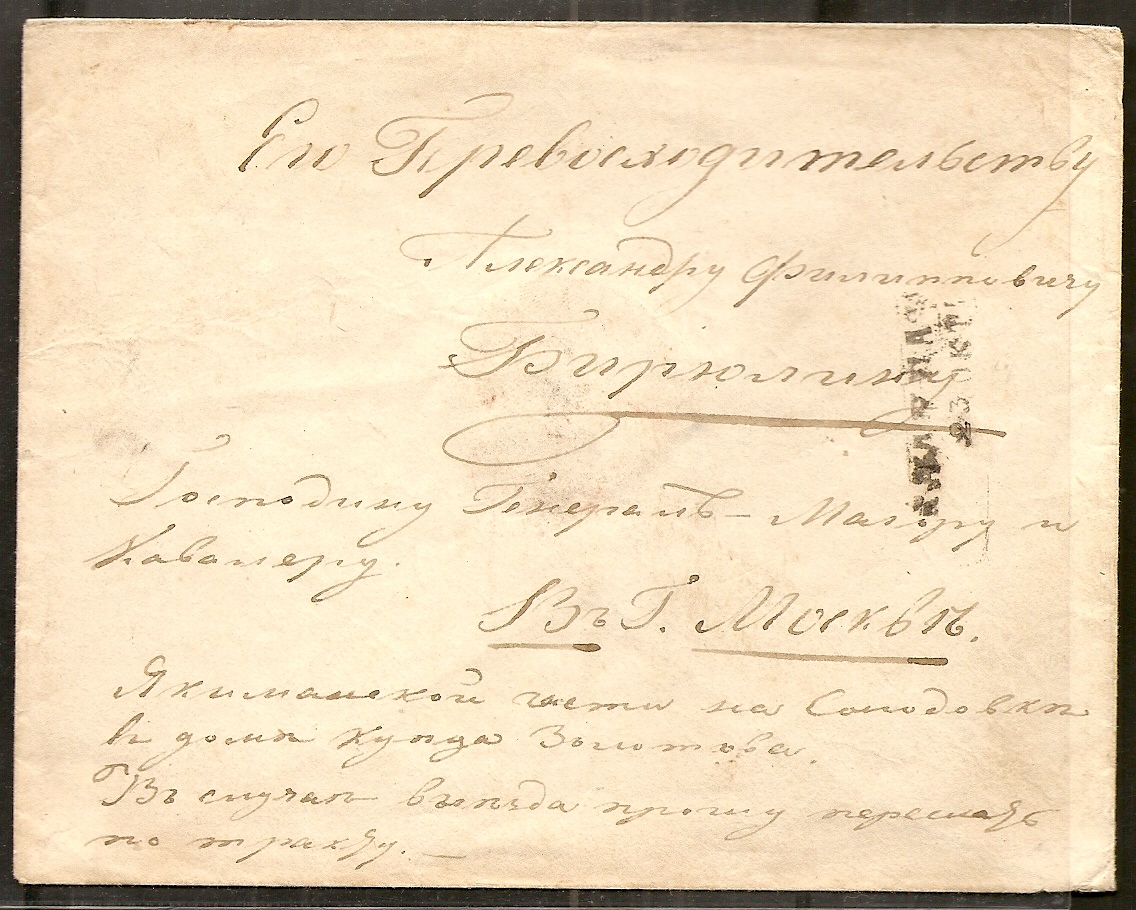 Его Превосходительству
Александру Филипповичу
Бирюлину
Господину Генералъ-Маіору и
Кавалеру.
Въ Г. Москвѣ.
Якиманской части на Солодовкѣ
въ домѣ купца Золотова.
Въ случаѣ выѣзда прошу переслать
по тракту.
23 ОКТ